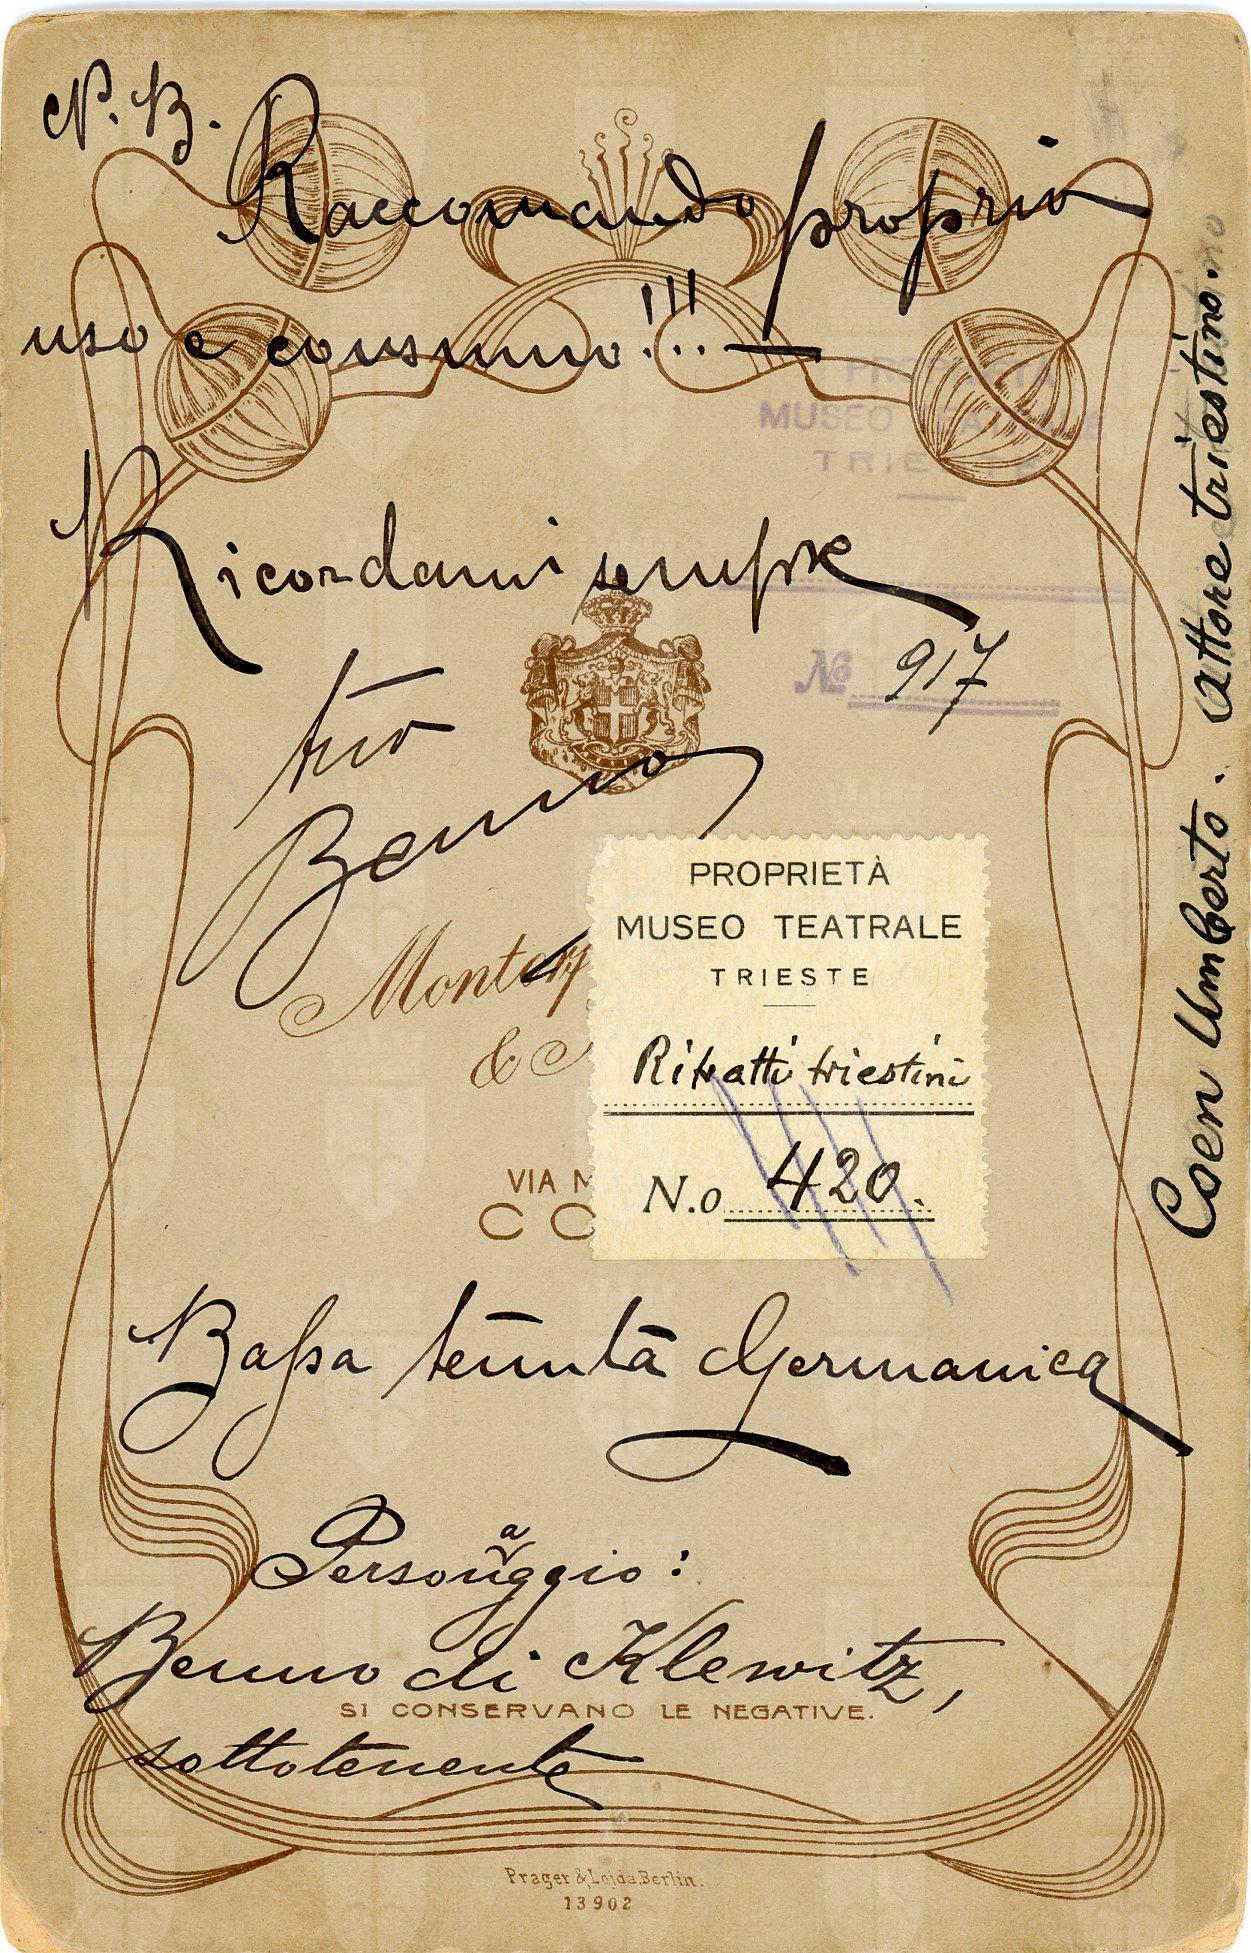 N.B.
Raccomando proprio
uso e consumo!!! —
PROPRIETÀ
MUSEO TEATRALE
TRIESTE
Ricordami sempre
No 917
tuo
Benno
Monta
&
PROPRIETÀ
MUSEO TEATRALE
TRIESTE
Ritratti triestini
N.o 420.
VIA M
CO
Coen Umberto. attore triestino.
Bassa tenuta Germanica
Personaggio:
Benno di Klewitz,
SI CONSERVANO LE NEGATIVE.
sottotenente
Prager & Lojda, Berlin.
13902